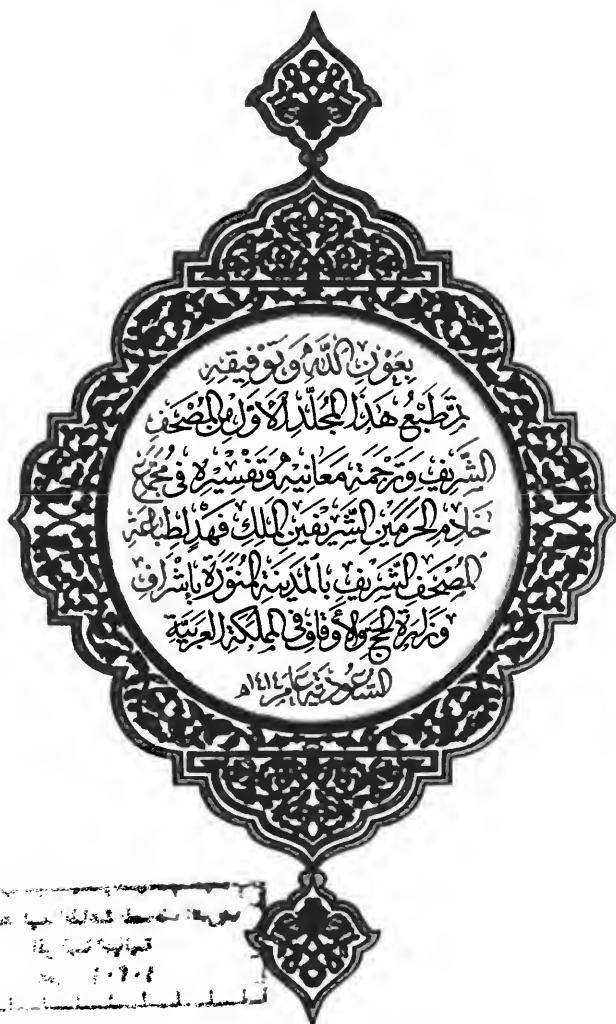 بِعَوْنِ اللَّهِ وَتَوْفِيقِهِ
تَمَّ طَبْعُ هَذَا الْمُجَلَّدِ الْأَوَّلِ مِنَ الْمُصْحَفِ
الشَّرِيفِ وَتَرْجَمَةِ مَعَانِيهِ وَتَفْسِيرِهِ فِي مُجَمَّعِ
خَادِمِ الْحَرَمَيْنِ الشَّرِيفَيْنِ الْمَلِكِ فَهْدٍ لِطِبَاعَةِ
الْمُصْحَفِ الشَّرِيفِ بِالْمَدِينَةِ الْمُنَوَّرَةِ بِإِشْرَافِ
وَزَارَةِ الْحَجِّ وَالْأَوْقَافِ فِي الْمَمْلَكَةِ الْعَرَبِيَّةِ
السُّعُودِيَّةِ عَامَ ١٤١٤هـ